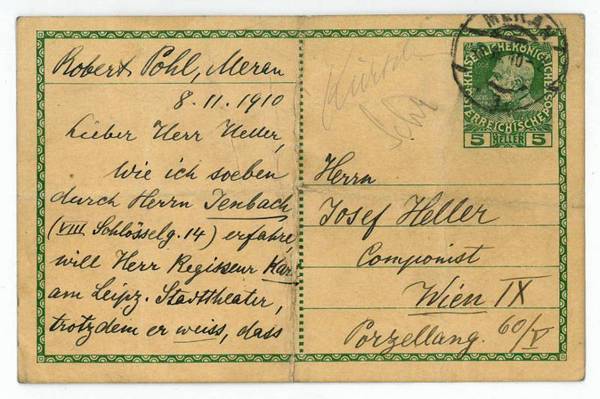 Robert Pohl, Meran
8.11.1910
Lieber Herr Heller,
Wie ich soeben
durch Herrn Jenbach
(VIII. Schlösselg. 14) erfahre
will Herr Regisseur Kar.
am Leipz. Stadttheater,
trotzdem er weiss, dass
MERAN
KAISERLICHE KÖNIGLICHE
ÖSTERREICHISCHE POST
5 HELLER 5
Herrn
Josef Heller
Componist
Wien IX
Porzellang. 60/V